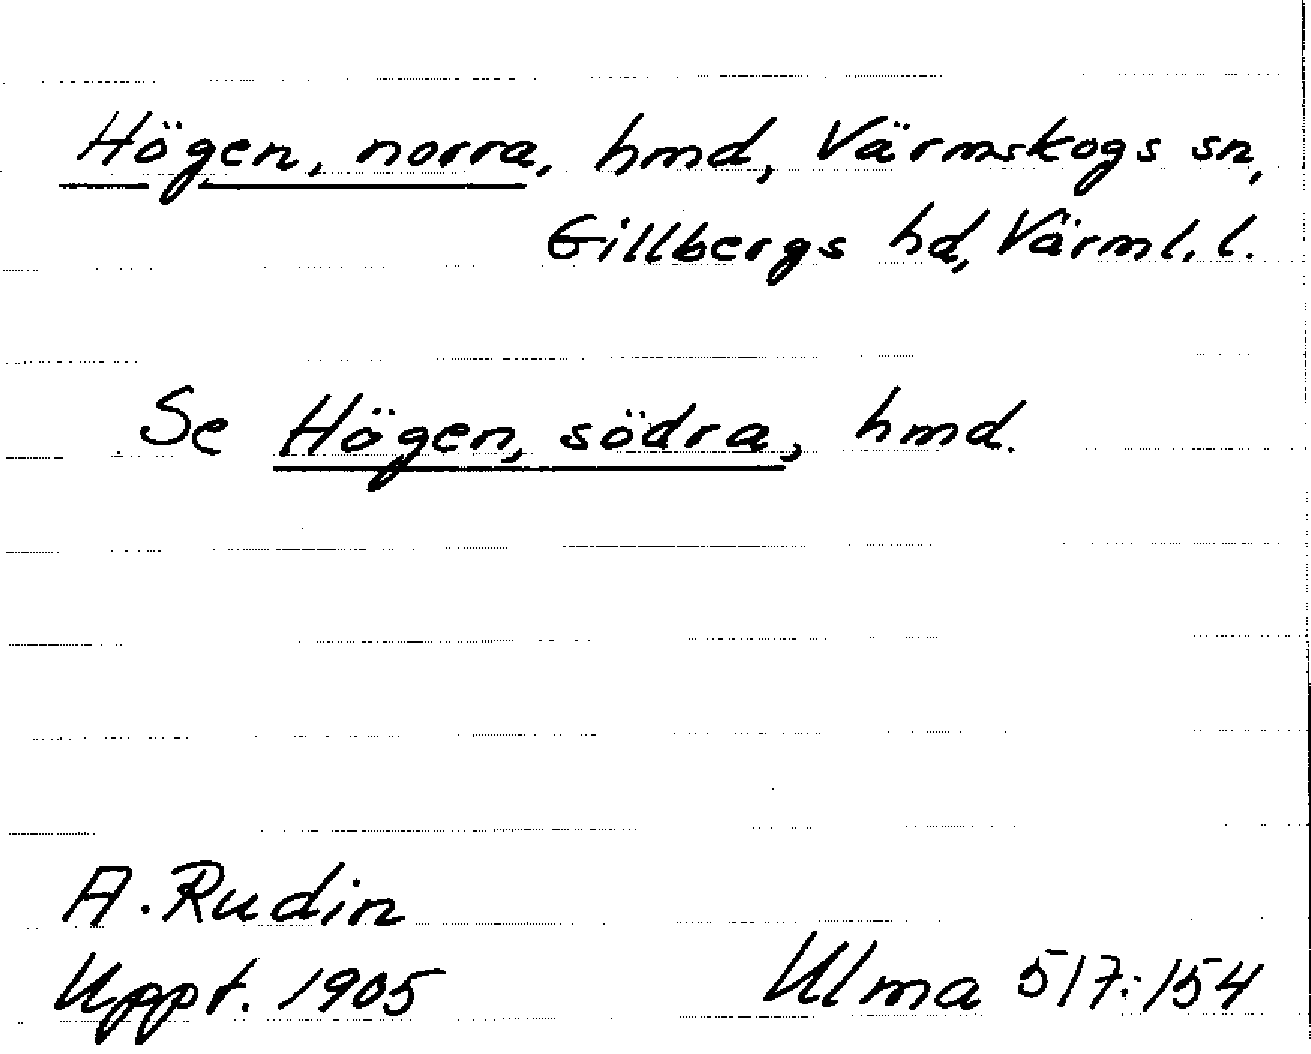 Högen, norra, hmd, Värmskogs sn,
Gillbergs hd, Värml. l.
Se Högen, södra, hmd.
A. Rudin
Uppt. 1905
Ulma 517:154